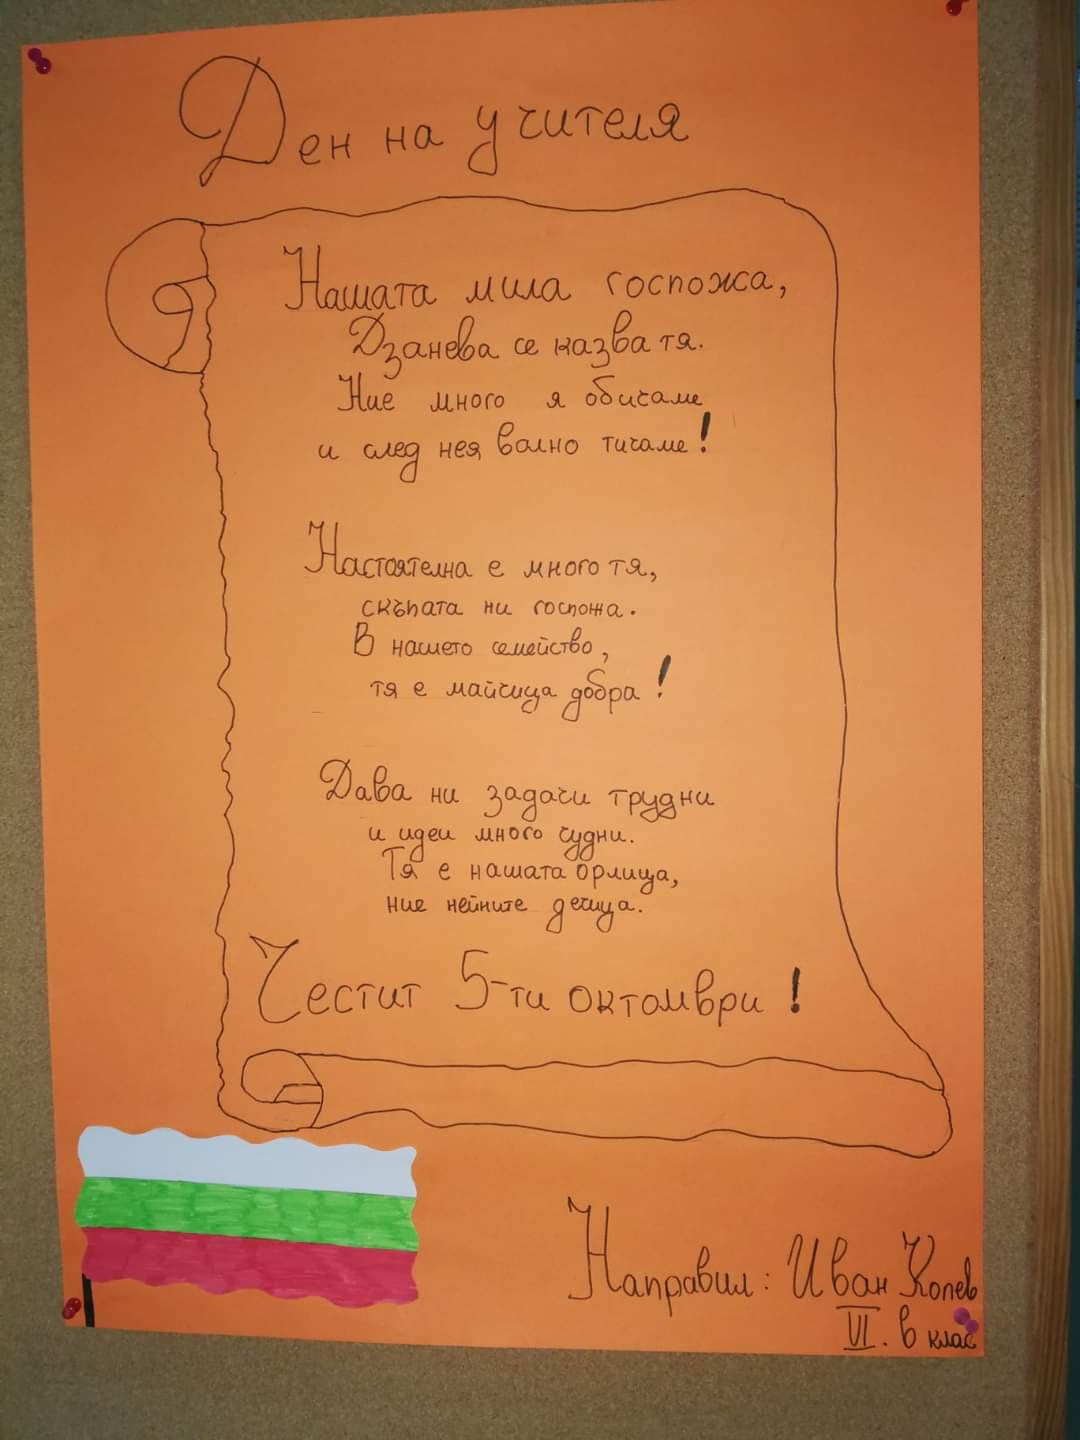 Ден на учителя
Нашата мила госпожа,
Дзанева се казва тя.
Ние много я обичаме
и след нея волно тичаме!
Настоятелна е много тя,
скъпата ни госпожа.
В нашето семейство,
тя е майчица добра!
Дава ни задачи трудни
и идеи много чудни.
Тя е нашата орлица,
ние нейните дечица.
Честит 5-ти октомври!
Направил: Иван Колев
VI. в клас